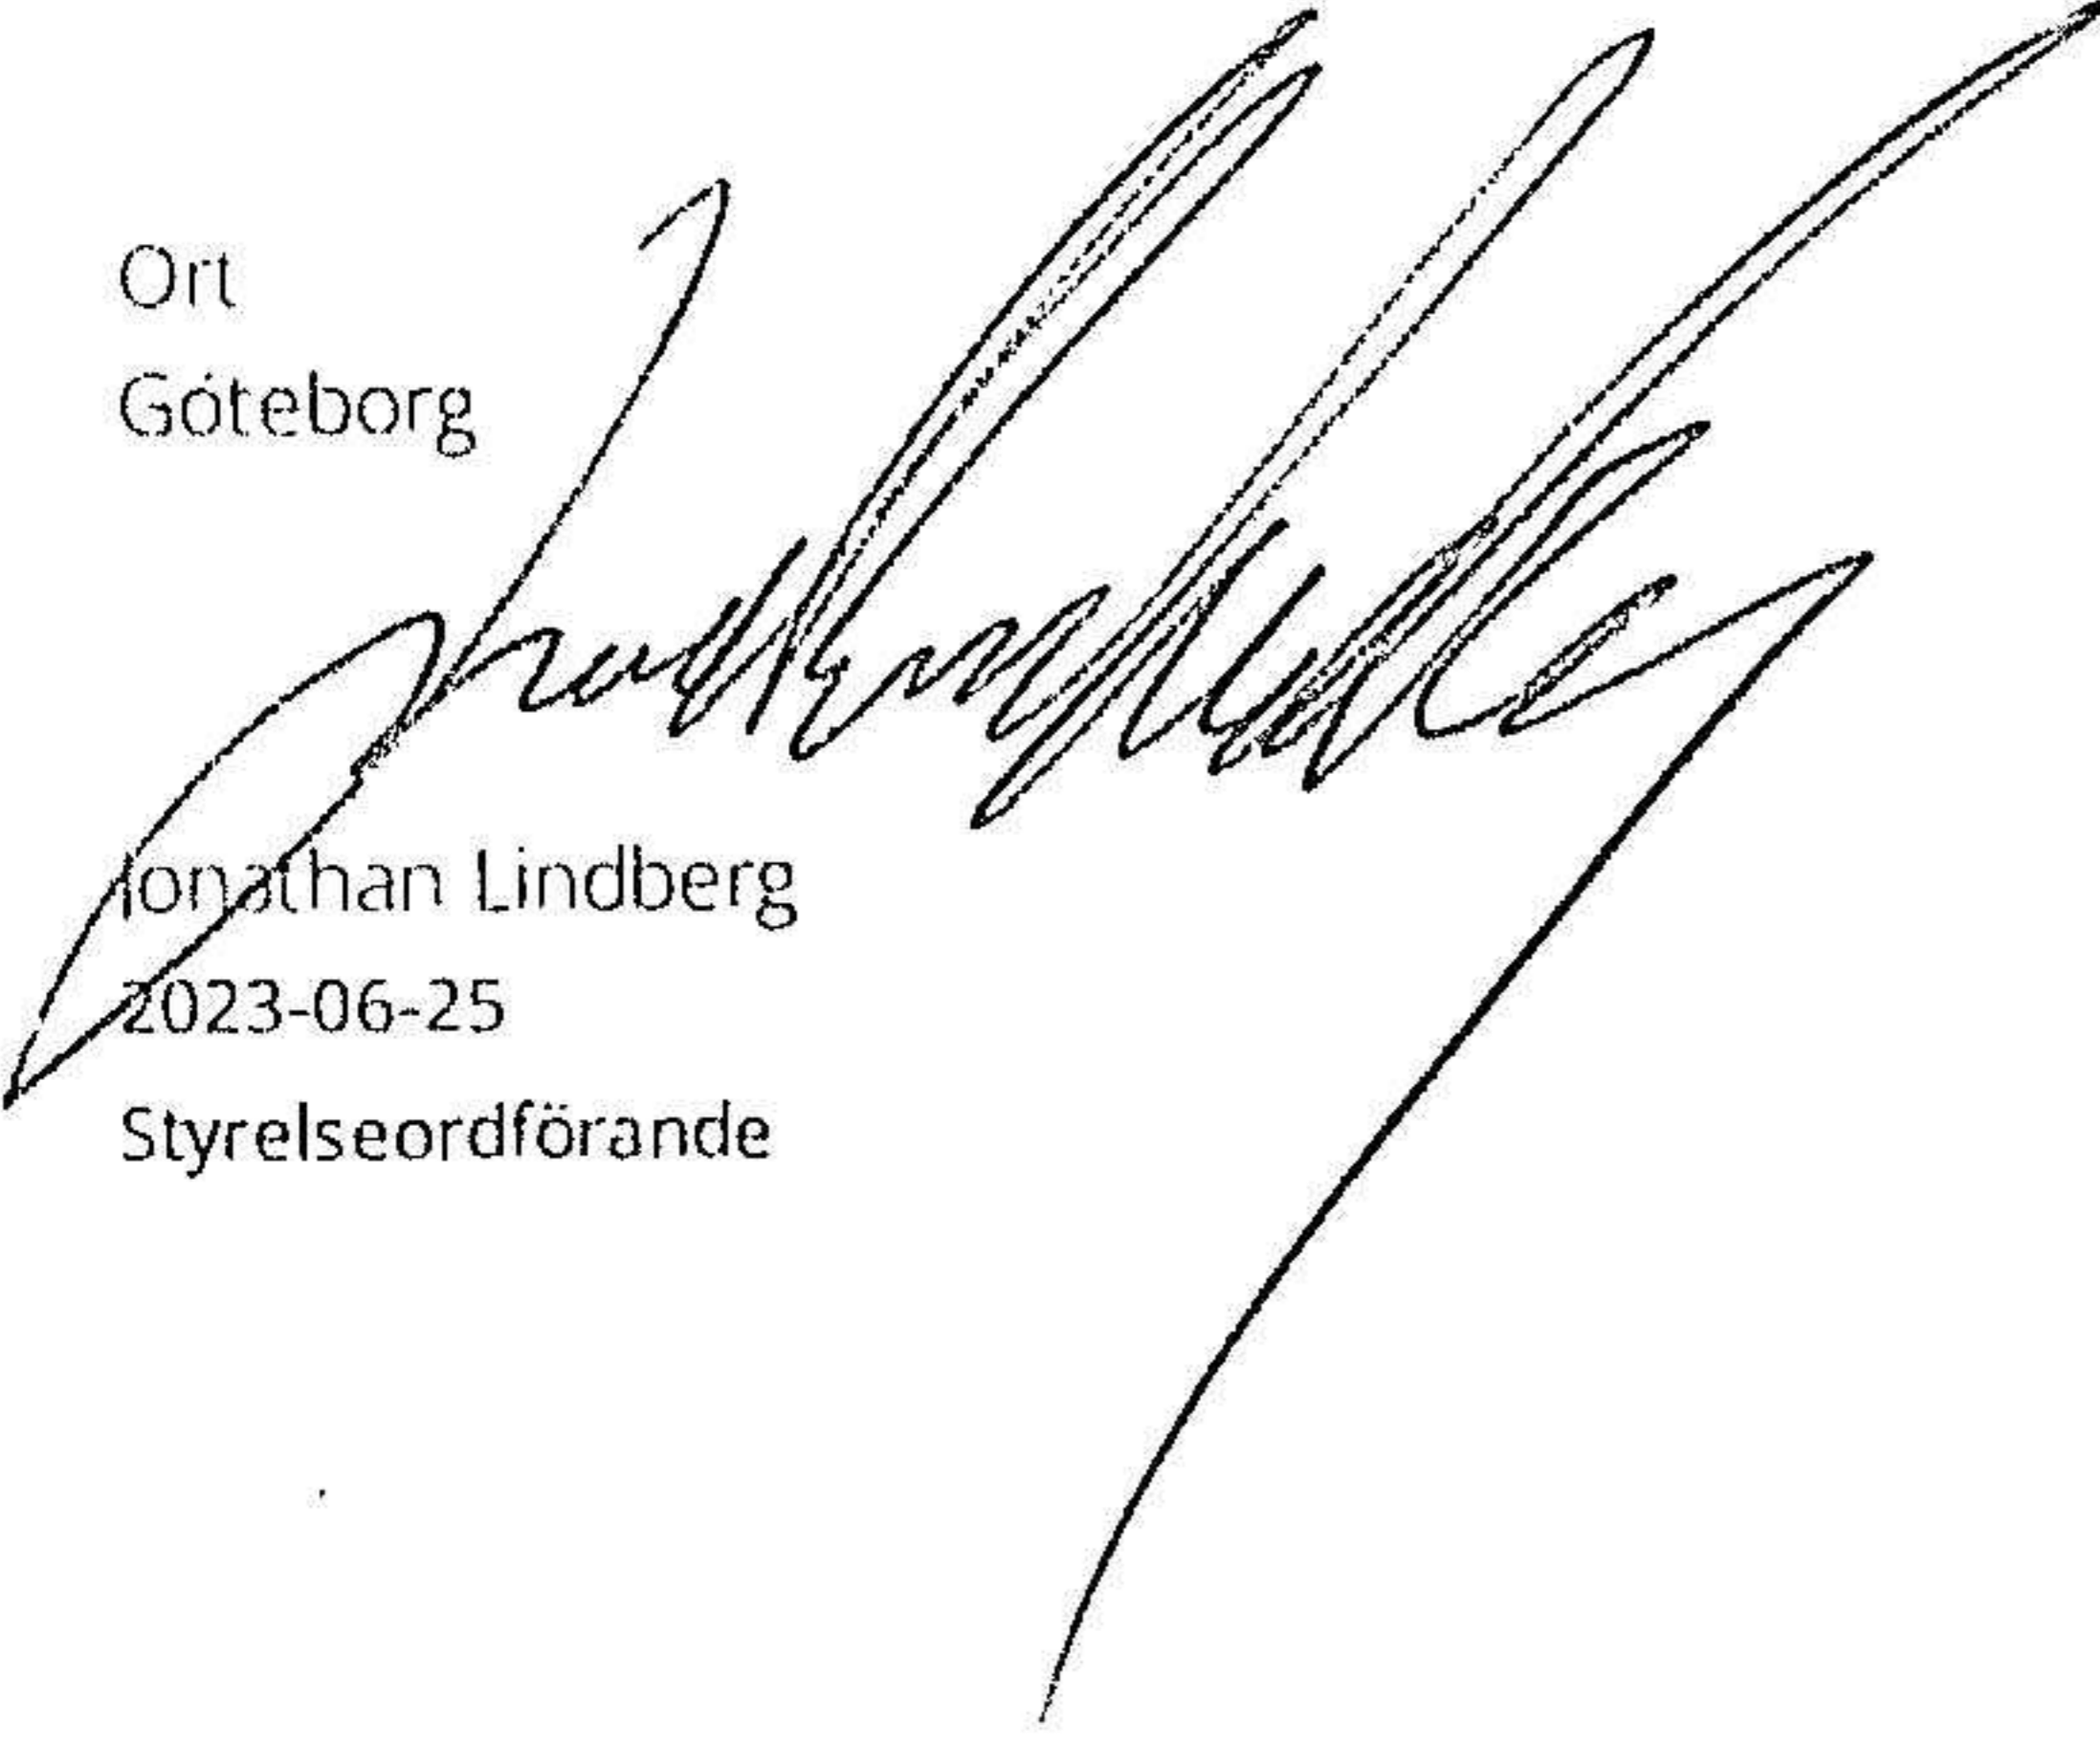 Ort
Göteborg
Jonathan Lindberg
2023-06-25
Styrelseordförande